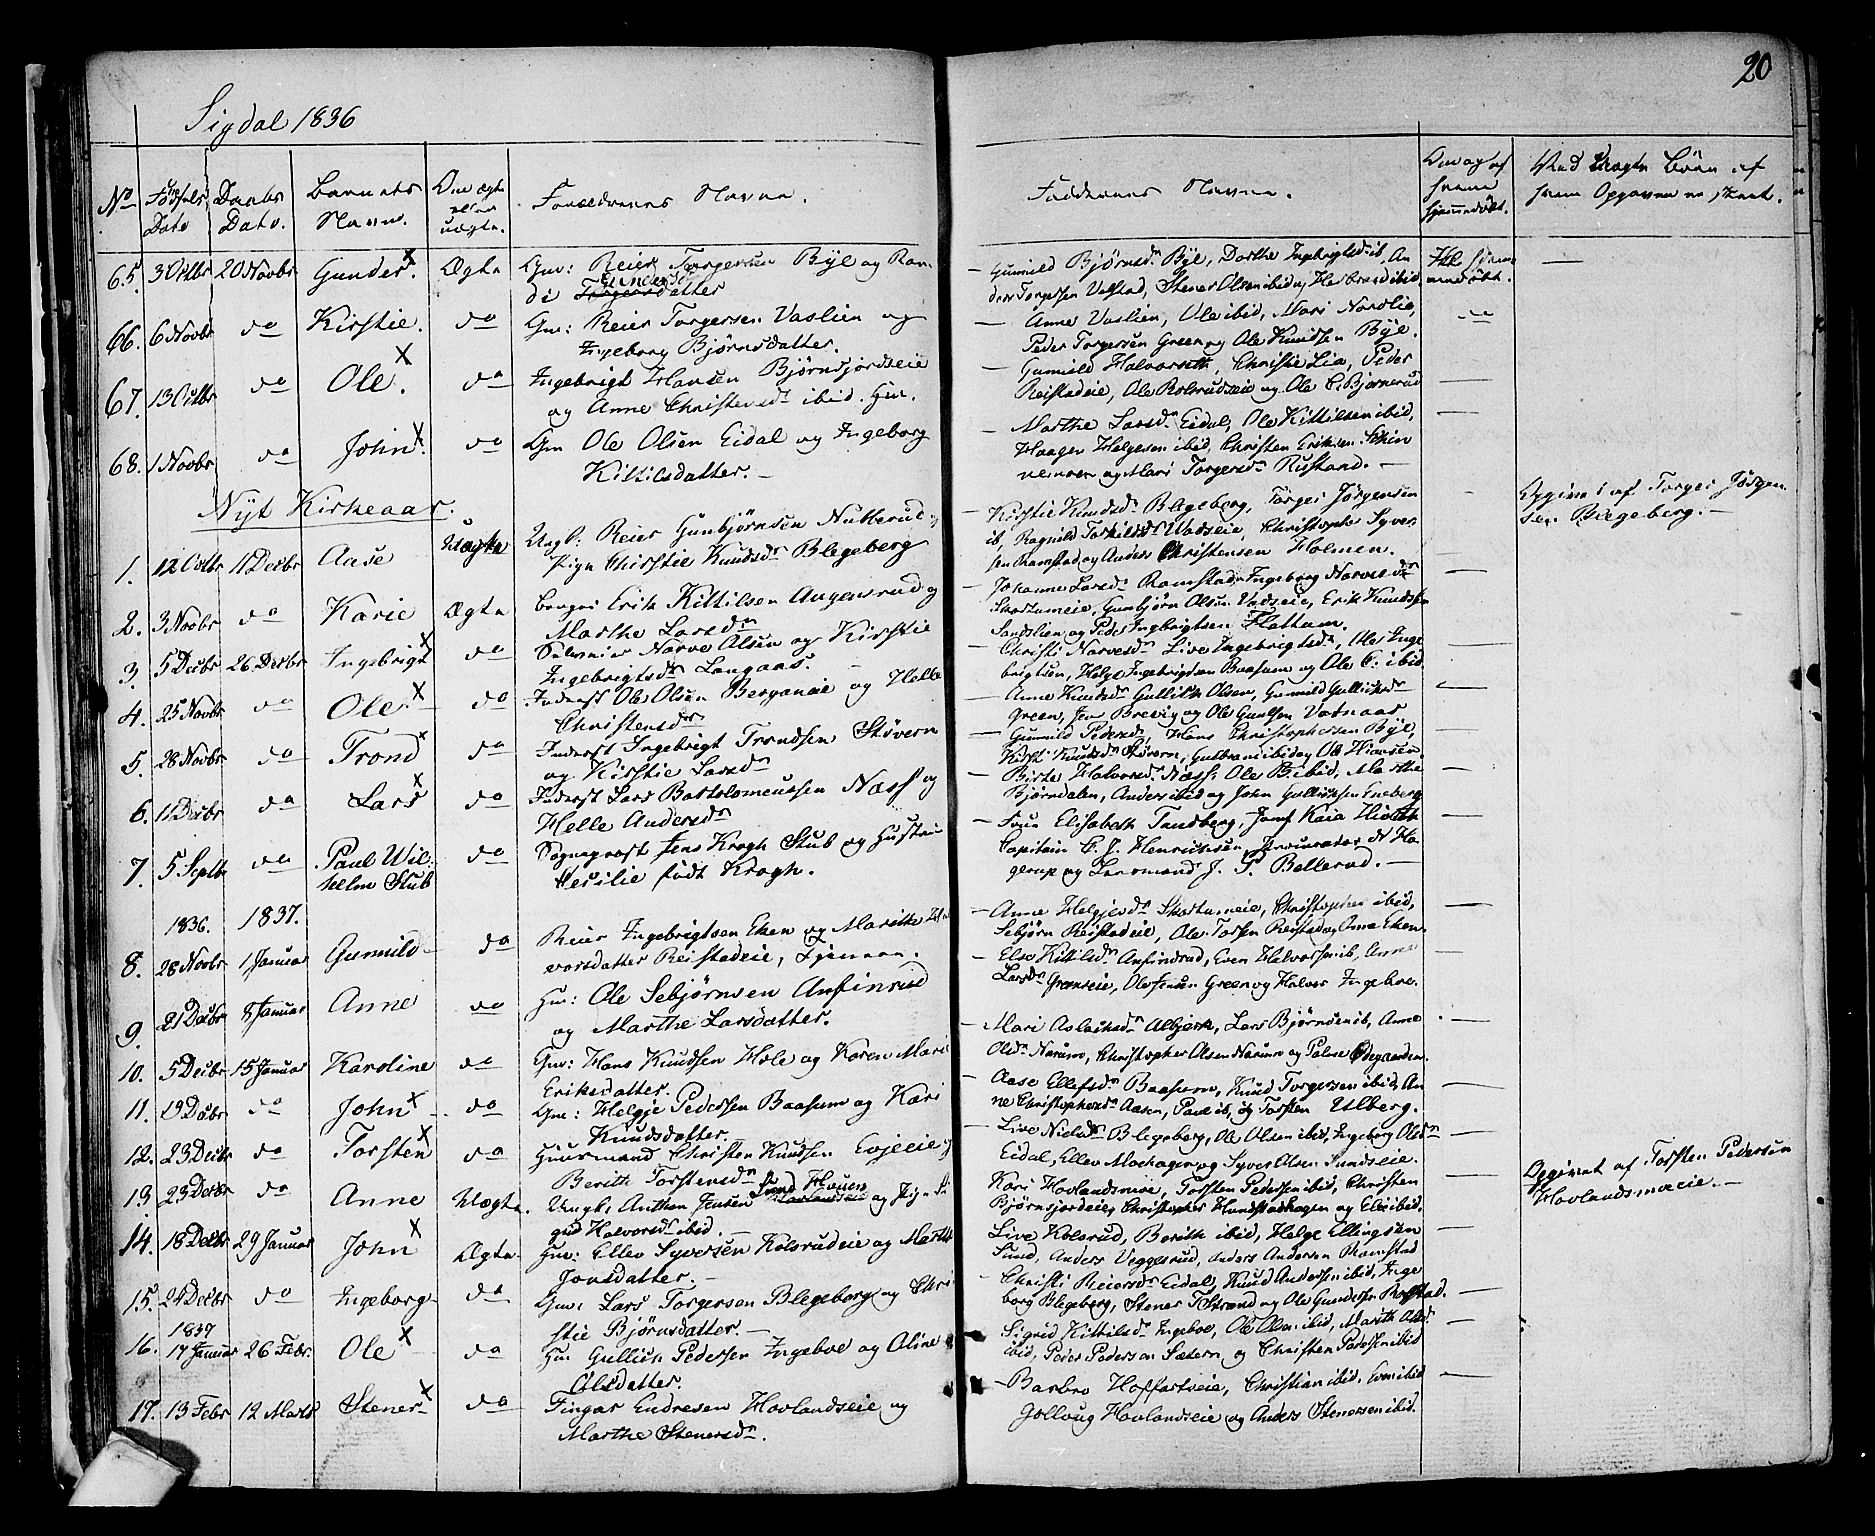 20
Sigdal 1836
No
Fødsels Dato
Daabs Dato.
Barnets Navn.
Om ægte eller uægte.
Forældrenes Navne.
Faddernes Navne.
Om og af hvem hjemmedøbt.
Ved Uægte Børn af hvem Opgaven er skeet.
65. 3 Octbr 20 Novbr Gunder. X Ægte Gm: Reier Torgersen Bÿe og Ran-
di Torgersdatter
Gunild Bjørnsd. Bÿe, Dorthe Ingebrigtsd. ib, An-
ders Torgersen Velstad, Stener Olsen ibid og Herbrand ibid
66. 6 Novbr do Kirstie. do Gm: Reier Torgersen Vaslien og
Ingeborg Bjørnsdatter.
Anne Vaslien, Ole ibid, Mari Nordlie,
Peder Torgersen Green og Ole Knudsen Bÿe.
67. 13 Octbr do Ole. X do Ingebrigt Hansen Bjørnsjordseie
og Anne Christensd. ibid. Gm.
Gunild Halvorseth, Christie Lia, Peder
Reistadeie, Ole Kolsrudseie og Ole C. Bjørnerud
68. 1 Novbr do John. X do Gm Ole Olsen Eidal og Ingeborg
Kittilsdatter. —
Marthe Larsd. Eidal, Ole Kittilsen ibid,
Haagen Helgesen ibid, Christen Eriksen Skin
nemoen og Mari Torgersd. Rustand. —
Nÿt Kirkeaar.
1. 12 Octbr 11 Decbr Aase Uægte Ungk: Reier Gunbjørnsen Nubberud og
Pige Christie Knudsd. Blegeberg
Kirstie Knudsd. Blegeberg, Torger Jørgensen
ib, Ragnild Torkildsd. Vadseie, Christopher Syver-
sen Ramstad og Anders Christensen Holmen.
Opgivet af Torger Jørgen-
sen Blegeberg. —
2. 3 Novbr do Karie Ægte Erik Kittilsen Augensrud og
Marthe Larsd.
Johanne Larsd. Ramstad, Ingeborg Narvesd.
Skartumeie, Gunbjørn Olsen Vadseie, Erik Knudsen
Sandslien og Peder Ingebrigtsen Flattum.
3. 5 Decbr 26 Decbr Ingebrigt X do Selveier Narve Olsen og Kirstie
Ingebrigtsd. Langaas. —
Christi Narvesd. Live Ingebrigtsd., Ole Inge
brigtsen, Helge Ingebrigtsen Baasum og Ole C. ibid
4. 25 Novbr do Ole X do Inderst Ole Olsen Berganeie og Helle
Christensd.
Anne Knudsd. Gullik Olsen, Gunild Gulliksd.
Green, Jen Brevig og Ole Gunlsen Vatnaas
5. 28 Novbr do Trond X do Inderst Ingebrigt Trondsen Støvern
og Kirstie Larsd.
Gunild Pedersd., Hans Christophersen Bÿe,
Kirst. Knudsd. Støvern, Gulbrand ibid og Ole Hansen
6. 11 Decbr do Lars X do Inderst Lars Bartolomeussen Næss og
Helle Andersd.
Birte Halvorsd. Næss, Ole B. ibid, Marthe
Bjørndalen, Anders ibid og John Gulliksen Eneberg
7. 5 Septb do Paul Wil-
helm Stub do Sogneprest Jens Krogh Stub og Hustru
Cecilie født Krogh.
Frue Elisabeth Tandberg, Jomf. Kaia Hiorth
Capitain C. J. Henrichsen, Procurator Ot Ha
gerup og Lensmand J. P. Bellerud. —
1836. 1837.
8. 28 Novbr 1 Januar Gunnild do Reier Ingebrigtsen Eken og Marithe Hal
vorsdatter Reistadeie, Tjenere.
Anne Helgjesd. Skartumeie, Christopher ibid,
Sebjørn Reistadeie, Ole Torsen Reistad og Anne Eken
9. 21 Decbr 8 Januar Anne do Gm: Ole Sebjørnsen Anfinrud
og Marthe Larsdatter.
Else Kittilsd. Anfindrud, Even Halvorsen ib, Anne
Larsd. Grønseie, Ole Jensen Green og Halvor Ingeboe.
10. 5 Decbr 15 Januar Karoline do Gm: Hans Knudsen Hole og Karen Marie
Eriksdatter.
Mari Aslaksd. Albjerk, Lars Bjørnsen ib, Anne
Olsd. Narum, Christopher Olsen Narum og Palne Ødegaarden.
11. 19 Decbr do John X do Gm: Helgje Pedersen Baasum og Kari
Knudsdatter.
Aase Ellefsd. Baasum, Knud Torgersen ibid, An
ne Christophersd. Aasen, Paul ib, og Torsten Ulberg.
12. 23 Decbr do Torsten X do Huusmand Christen Knudsen Evjeeie og
Berith Torstensd.
Live Nielsd. Blegeberg, Ole Olsen ibid, Ingeborg Olsd.
Eidal, Ellev Moehagen og Syver Olsen Sundseie.
13. 23 Decbr do Anne Uægte. Ungk: Anthon Jensen Hovlandseie og Pige Si
grid Halvorsd. ibid. —
Kari Hovlandsmoeie, Torsten Pedersen ibid, Christen
Bjørnsjordeie, Christopher Hundstadhagen og Eli ibid.
Opgivet af Torsten Pedersen
Hovlandsmoeie. —
14. 18 Decbr 29 Januar John X Ægte. Gm: Ellev Syversen Kolsrudeie og Marthe
Jonsdatter. —
Live Kolsrud, Berith ibid, Helge Ellingsen
Sund, Anders Veggesrud, Anders Andersen Ramstad
15. 24 Decbr do Ingeborg do Gm: Lars Torgersen Blegeberg og Chri
stie Bjørnsdatter. —
Christi Reiersd. Eidal, Knud Andersen ibid, Inge
borg Blegeberg, Stener T Strand og Ole Gundersen Rustad.
1837
16. 17 Januar 26 Febr. Ole X do Gm Gullich Pedersen Ingeboe og Oline
Olsdatter.
Sigrid Kittilsd. Ingeboe, Ole Olsen ibid, Marith Olsd.
ibid, Peder Pedersen Sætern og Christen Pedersen ibid
17. 13 Febr 12 Marts Stener X do Fingar Endresen Hovlandseie og
Marthe Stenersd.
Barbro Hoffartseie, Christian ibid, Even ibid
Gollaug Hovlandseie og Anders Stenersen ibid.